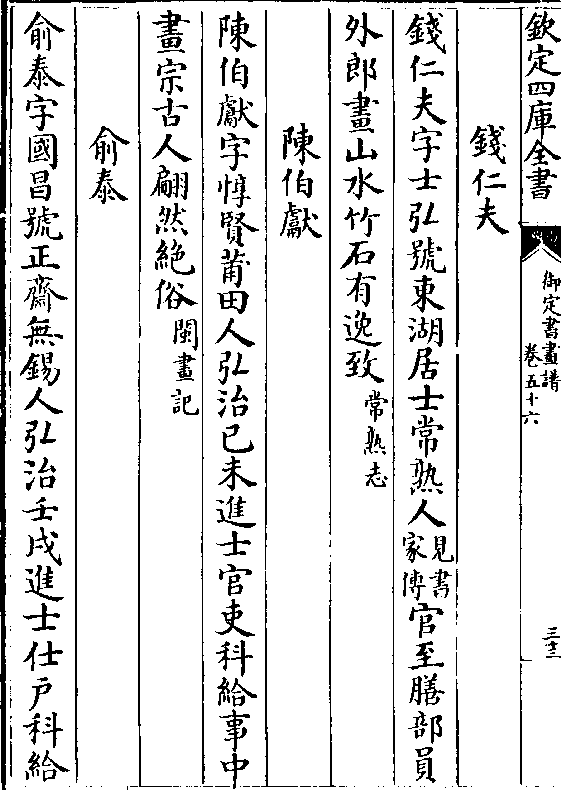 欽定四庫全書
御定書畫譜
卷五十六
三十二
錢仁夫
錢仁夫字士弘號東湖居士常熟人見書家傳官至膳部員
外郎畫山水竹石有逸致常熟志
陳伯獻
陳伯獻字惇賢莆田人弘治己未進士官吏科給事中
畫宗古人翩然絶俗閩畫記
俞泰
俞泰字國昌號正齋無錫人弘治壬戌進士仕戸科給